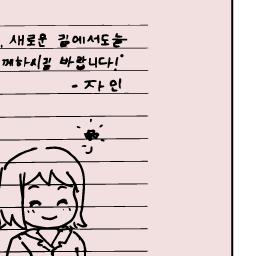 , 새로운 길에서도 늘
께하시길 바랍니다!
- 자인